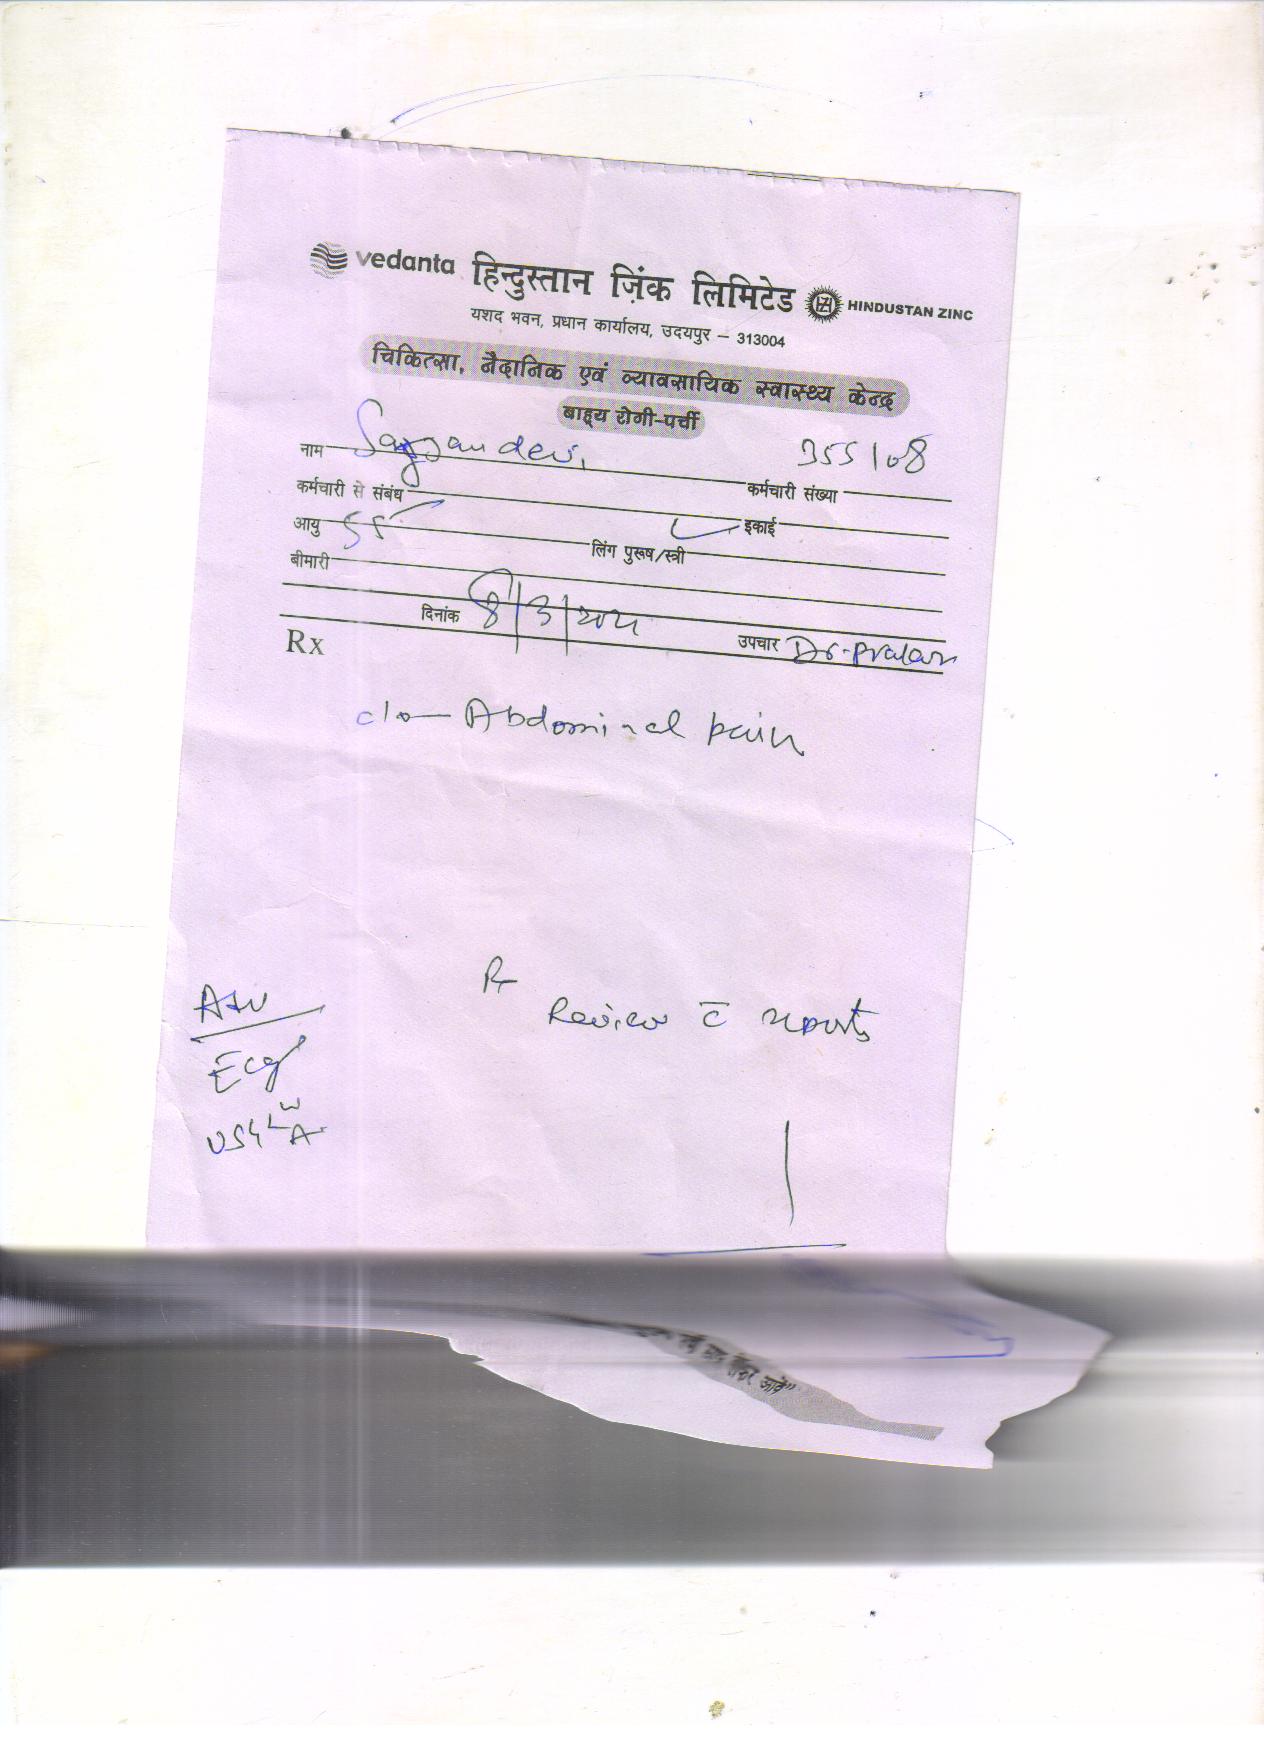 vedanta हिन्दुस्तान ज़िंक लिमिटेड HINDUSTAN ZINC
यशद भवन, प्रधान कार्यालय, उदयपुर – 313004
चिकित्सा, नैदानिक एवं व्यावसायिक स्वास्थ्य केन्द्र
बाह्य रोगी-पर्ची
नाम Sajjan devi 355108 कर्मचारी संख्या
कर्मचारी से संबंध इकाई
आयु 55 लिंग पुरूष/स्त्री
बीमारी
दिनांक 8/3/2021 उपचार Dr.
Rx
c/o — Abdominal pain
Review c̄ reports
Adv
Ecg
USG W A
आवें"